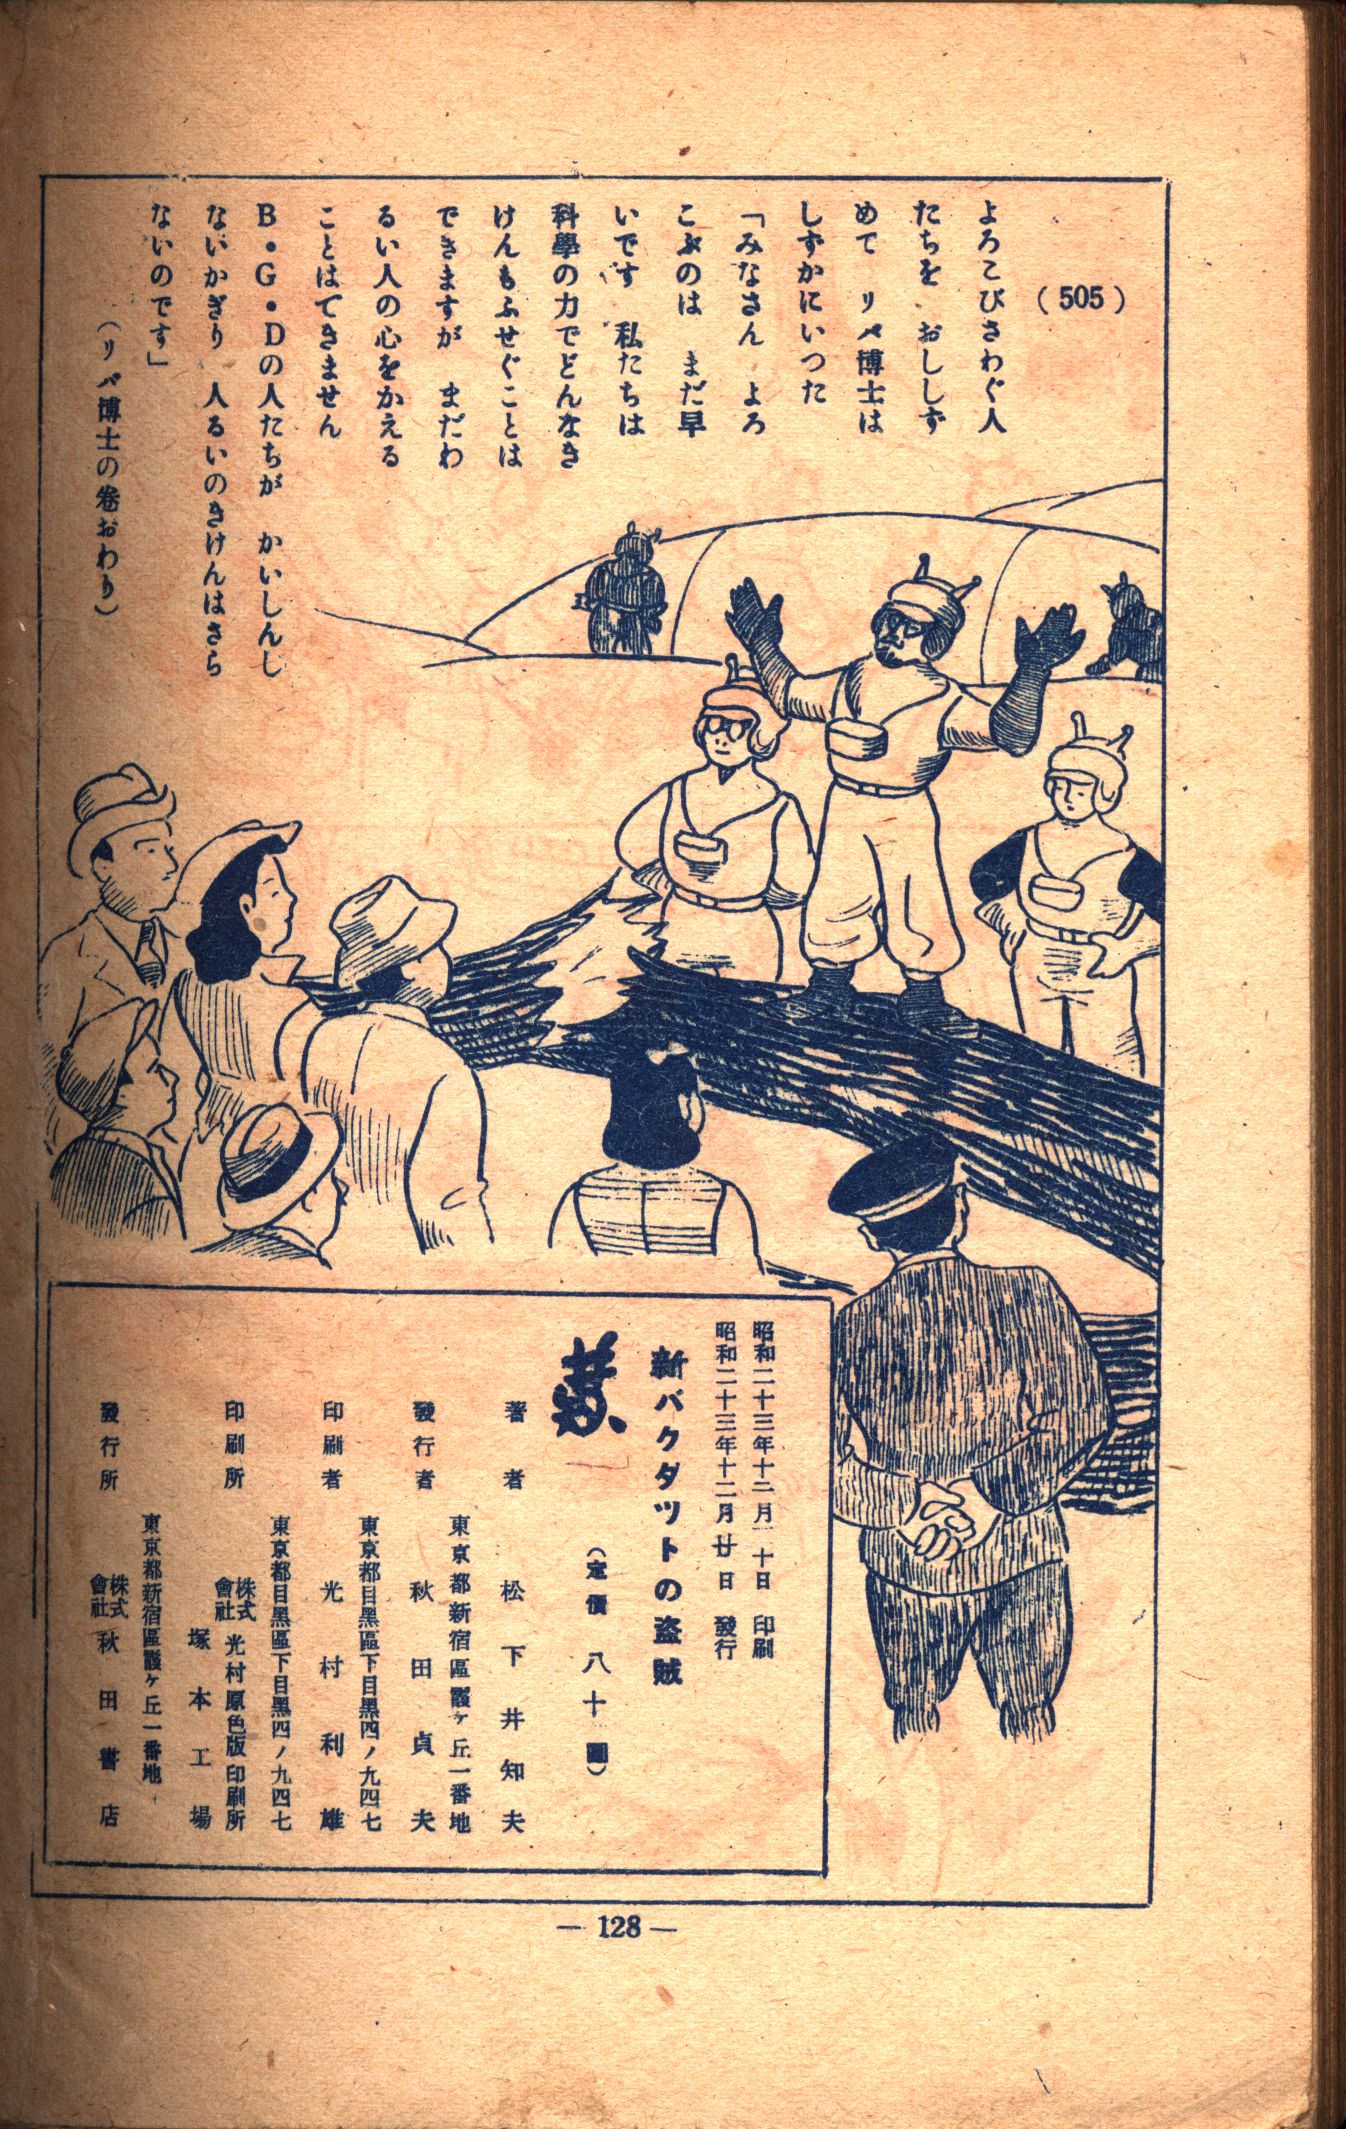 (505)
よろこびさわぐ人
たちを おししず
めて リパ博士は
しずかにいつた
「みなさん よろ
こぶのは まだ早
いです 私たちは
科學の力でどんなき
けんもふせぐことは
できますが まだわ
るい人の心をかえる
ことはできません
B・G・Dの人たちが かいしんし
ないかぎり 人るいのきけんはさら
ないのです」
(リパ博士の巻おわり)
昭和二十三年十二月一十日 印刷
昭和二十三年十二月廿日 發行
新バクダツトの盗賊
(定價 八十圓)
著者 松下井知夫
東京都新宿區霞ヶ丘一番地
發行者 秋田貞夫
東京都目黒區下目黒四ノ九四七
印刷者 光村利雄
東京都目黒區下目黒四ノ九四七
印刷所 株式會社 光村原色版印刷所
塚本工場
東京都新宿區霞ヶ丘一番地
發行所 株式會社 秋田書店
— 128 —